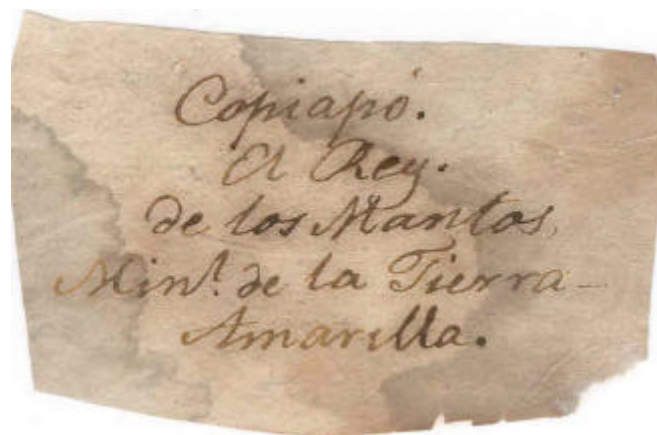 Copiapó.
El Rey.
de los Mantos
Minl. de la Tierra-
Amarilla.